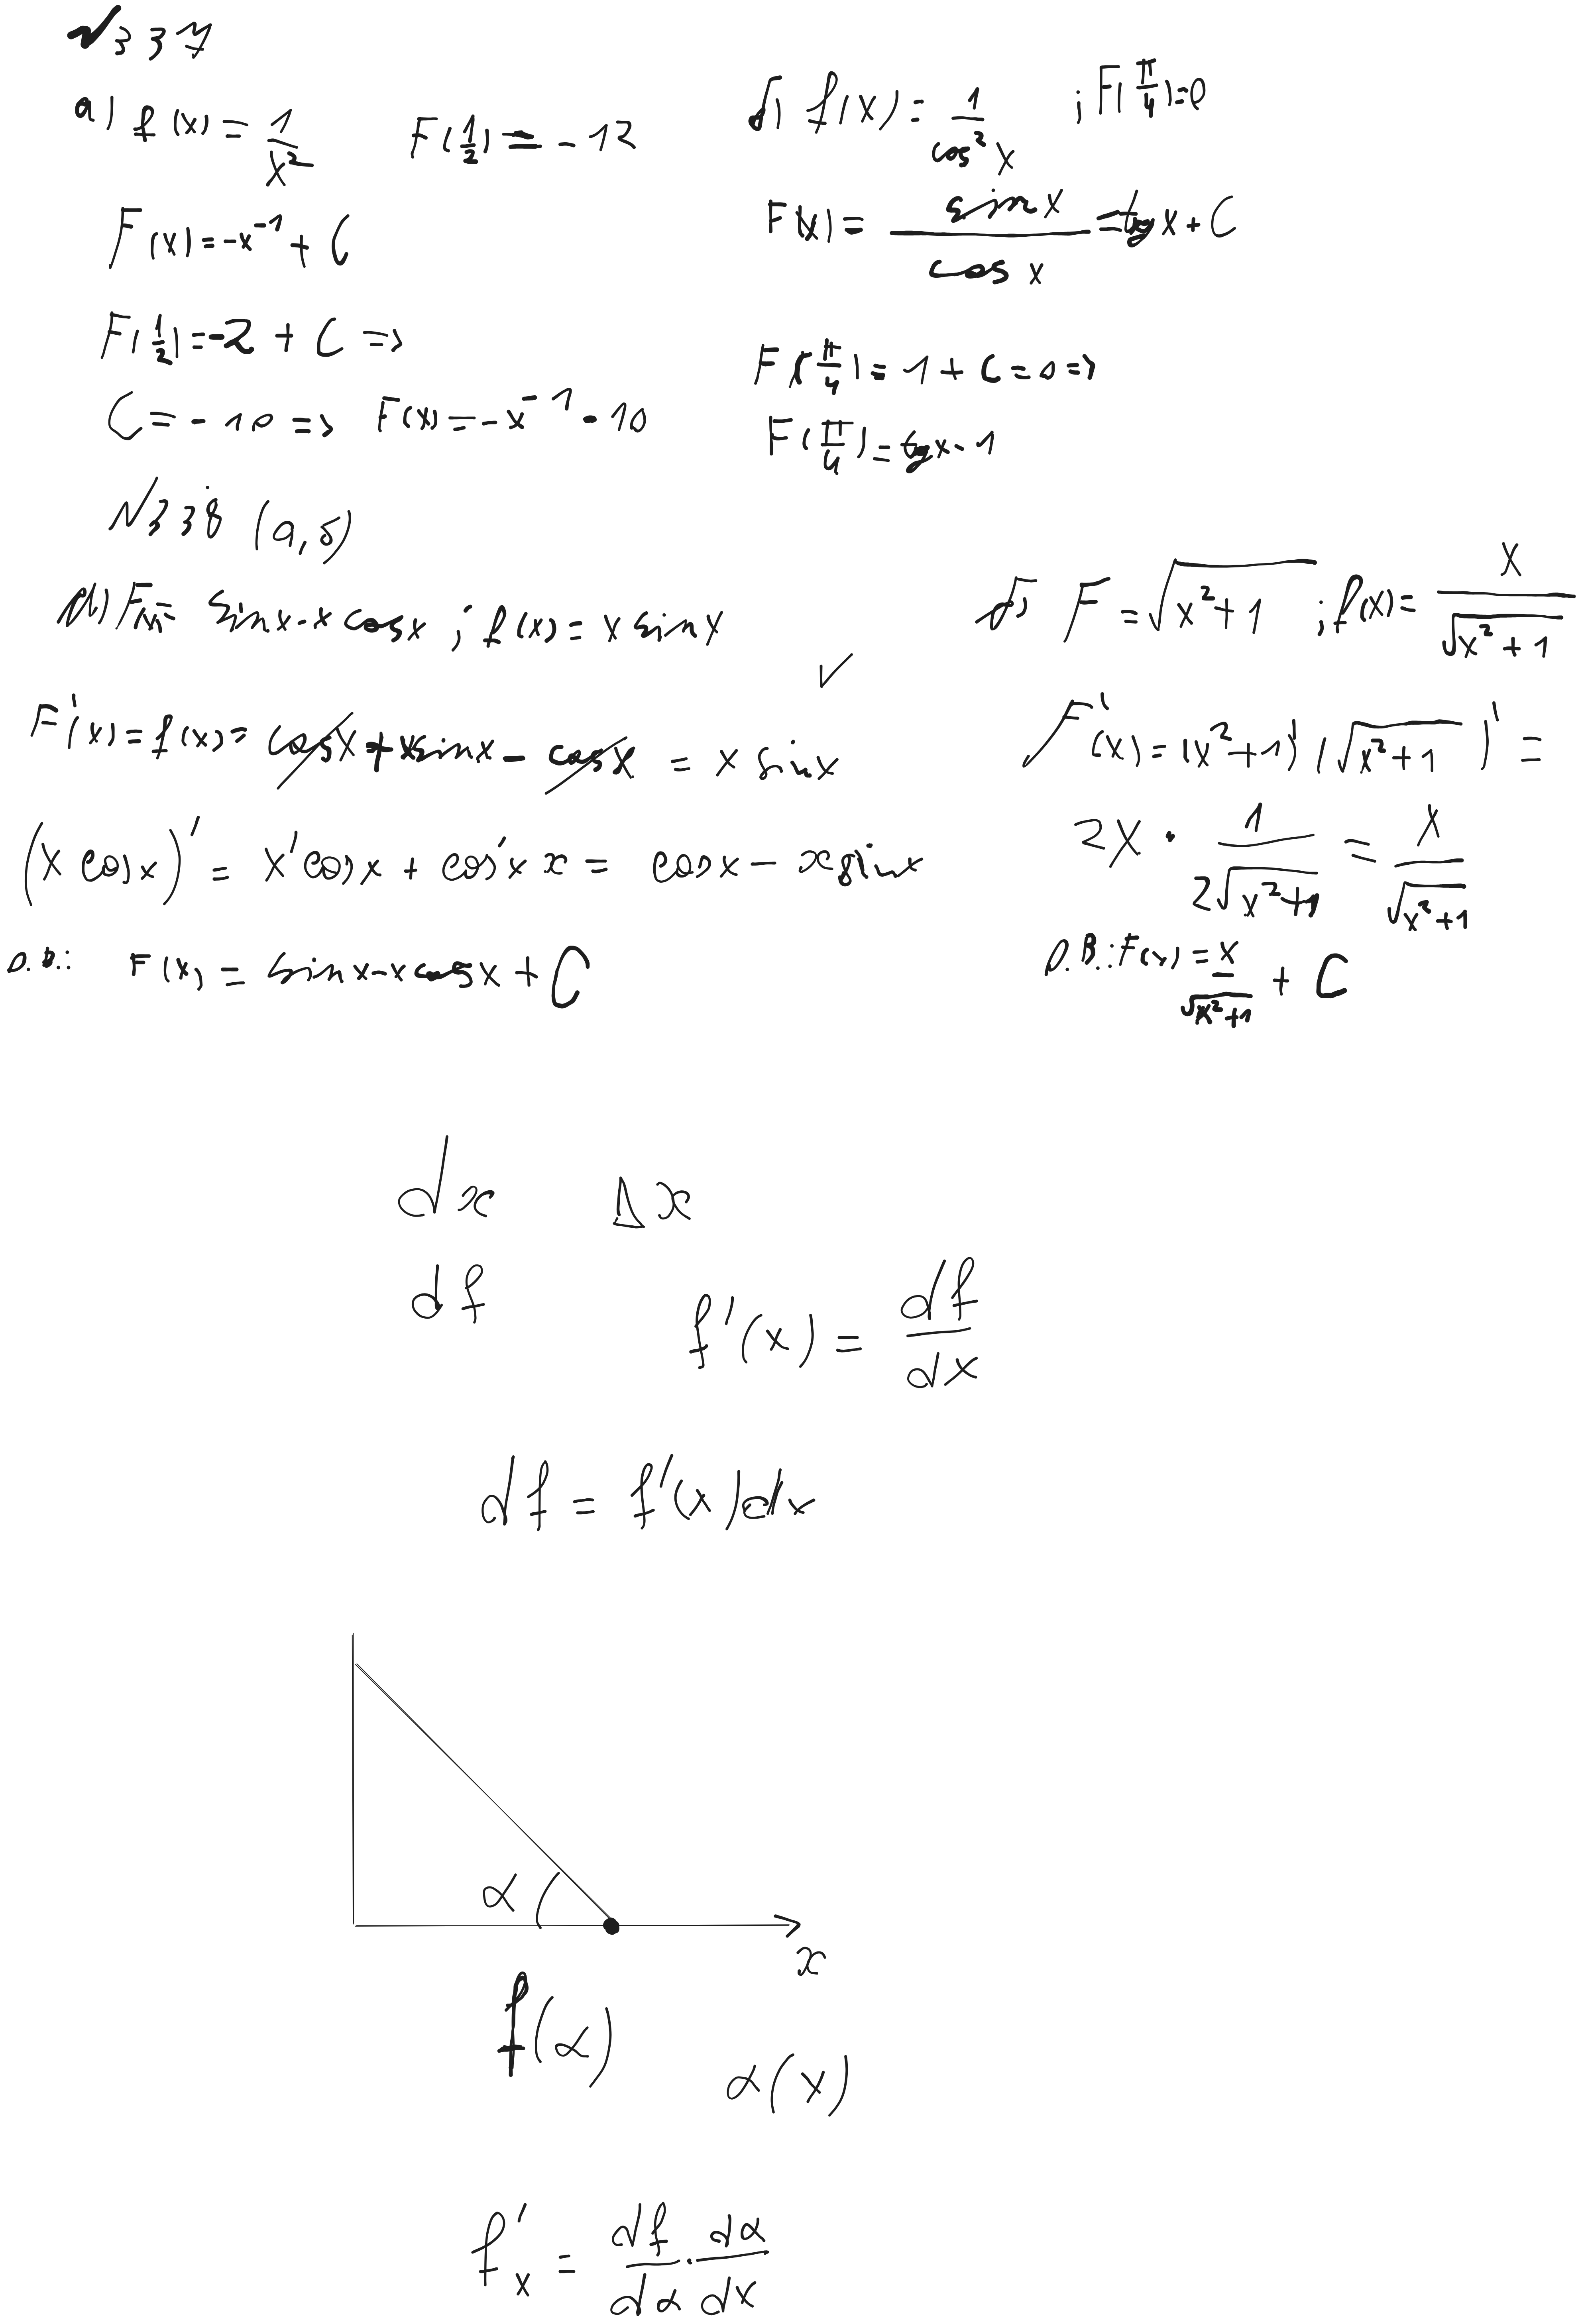 №337
а) f(x) = 1/x² F(1/2) = -12
F(x) = -x⁻¹ + C
F(1/2) = -2 + C =>
C = -10 => F(x) = -x⁻¹ - 10
б) f(x) = 1/cos²x ; F(π/4) = 0
F(x) = sin x/cos x = tg x + C
F(π/4) = 1 + C = 0 =>
F(π/4) = tg x - 1
№338 (а, б)
а) F(x) = sin x - x cos x ; f(x) = x sin x
F'(x) = f(x) = cos x + x sin x - cos x = x sin x
(x cos x)' = x' cos x + cos' x x = cos x - x sin x
О.В.: F(x) = sin x - x cos x + C
б) F = √(x²+1) ; f(x) = x/√(x²+1)
F'(x) = (x²+1)' (√(x²+1))' =
2x · 1/(2√(x²+1)) = x/√(x²+1)
О.В.: F(x) = x/√(x²+1) + C
dx Δx
df
f'(x) = df/dx
df = f'(x)dx
α
x
f(α)
α(x)
f'ₓ = df/dα · dα/dx